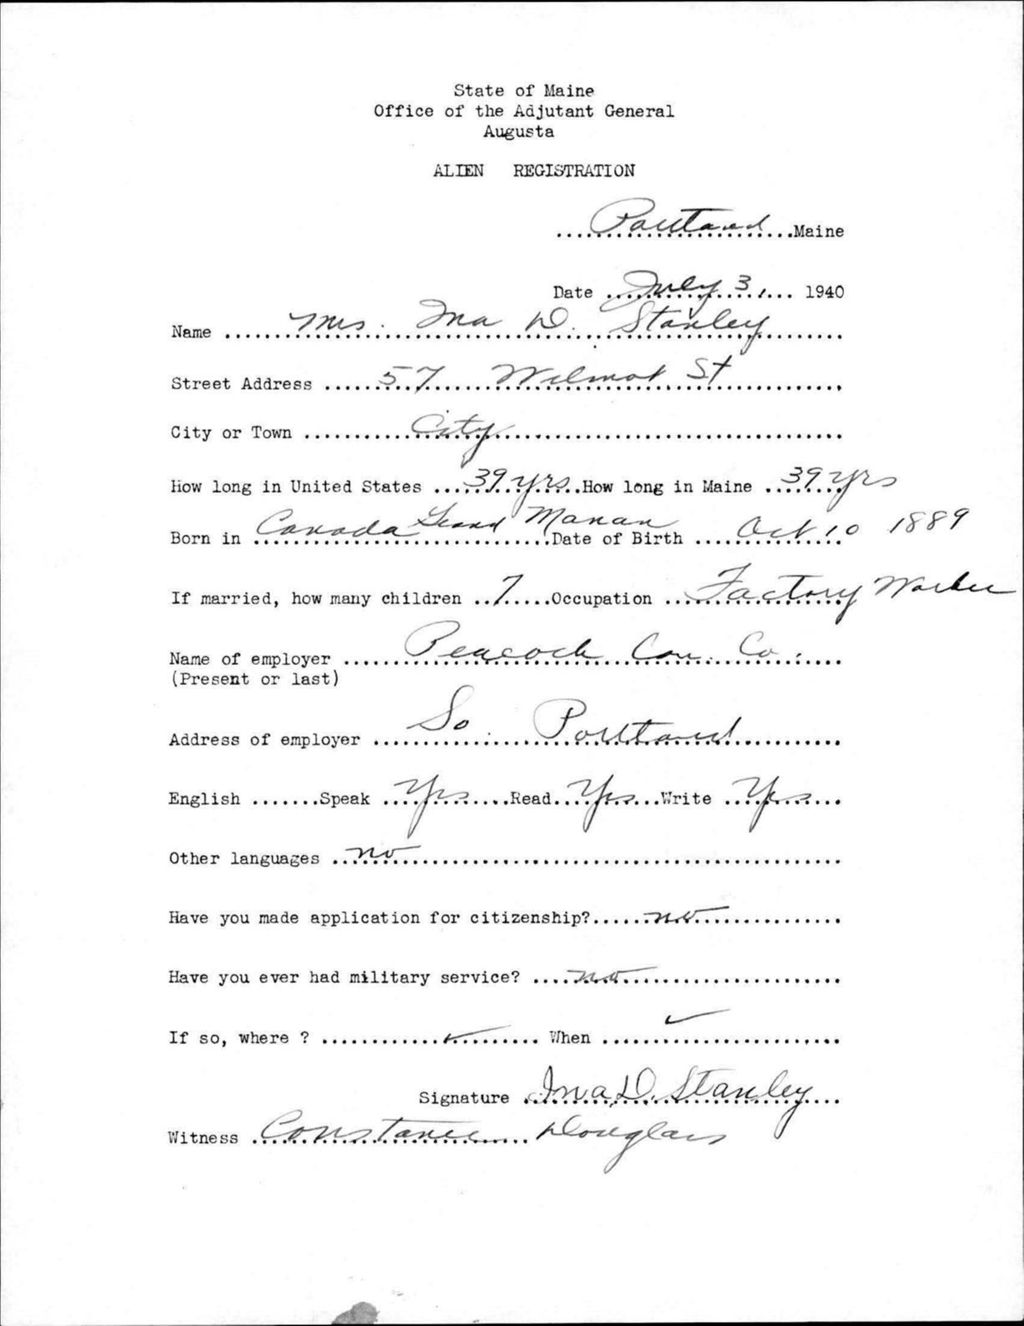 State of Maine
Office of the Adjutant General
Augusta
ALIEN REGISTRATION
Portland Maine
Date July 3, 1940
Name Mrs. Ina D. Stanley
Street Address 57 Wilmot St
City or Town City
How long in United States 39 yrs. How long in Maine 39 yrs
Born in Canada Grand Manan Date of Birth Oct 10 1889
If married, how many children 7 Occupation Factory Worker
Name of employer Peacock Can. Co.
(Present or last)
Address of employer So. Portland
English Speak Yes Read Yes Write Yes
Other languages no
Have you made application for citizenship? no
Have you ever had military service? no
If so, where ? ✓ When ✓
Signature Ina D. Stanley
Witness Constance Douglass